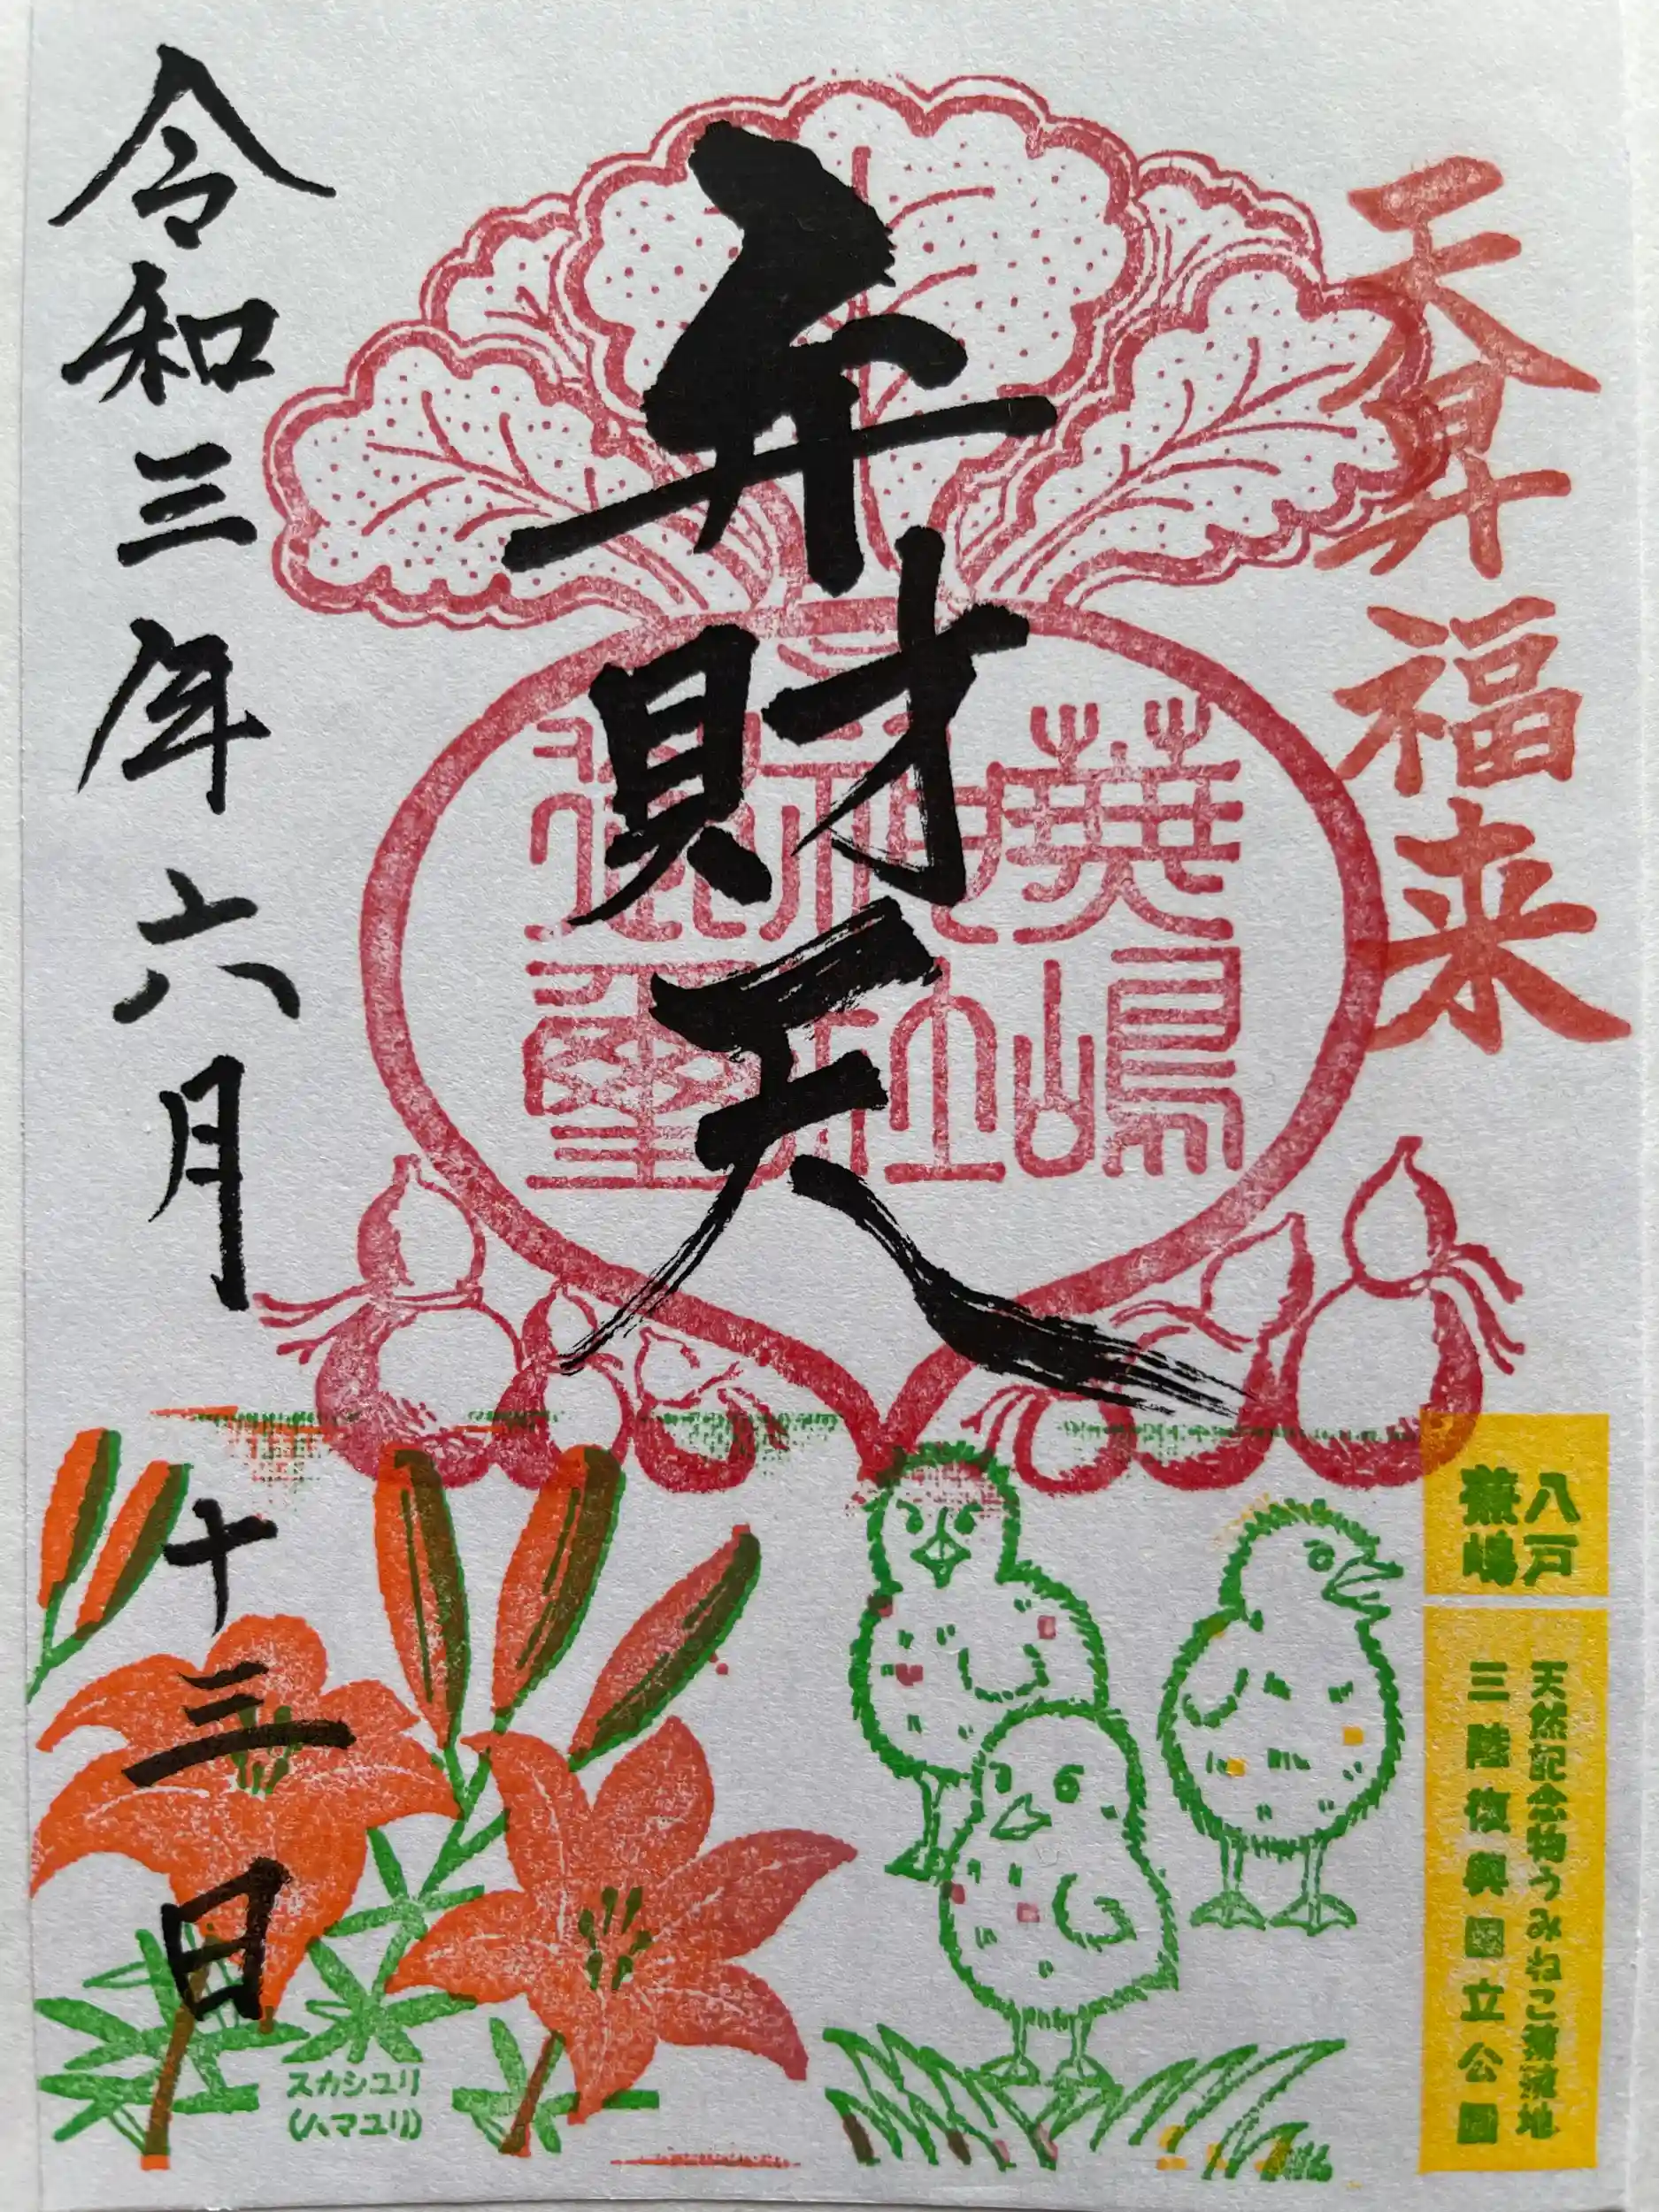 天昇福来
弁財天
蕪嶋
神社
御璽
令和三年六月十三日
八戸
蕪嶋
天然記念物うみねこ繁殖地
三陸復興国立公園
スカシユリ
(ハマユリ)